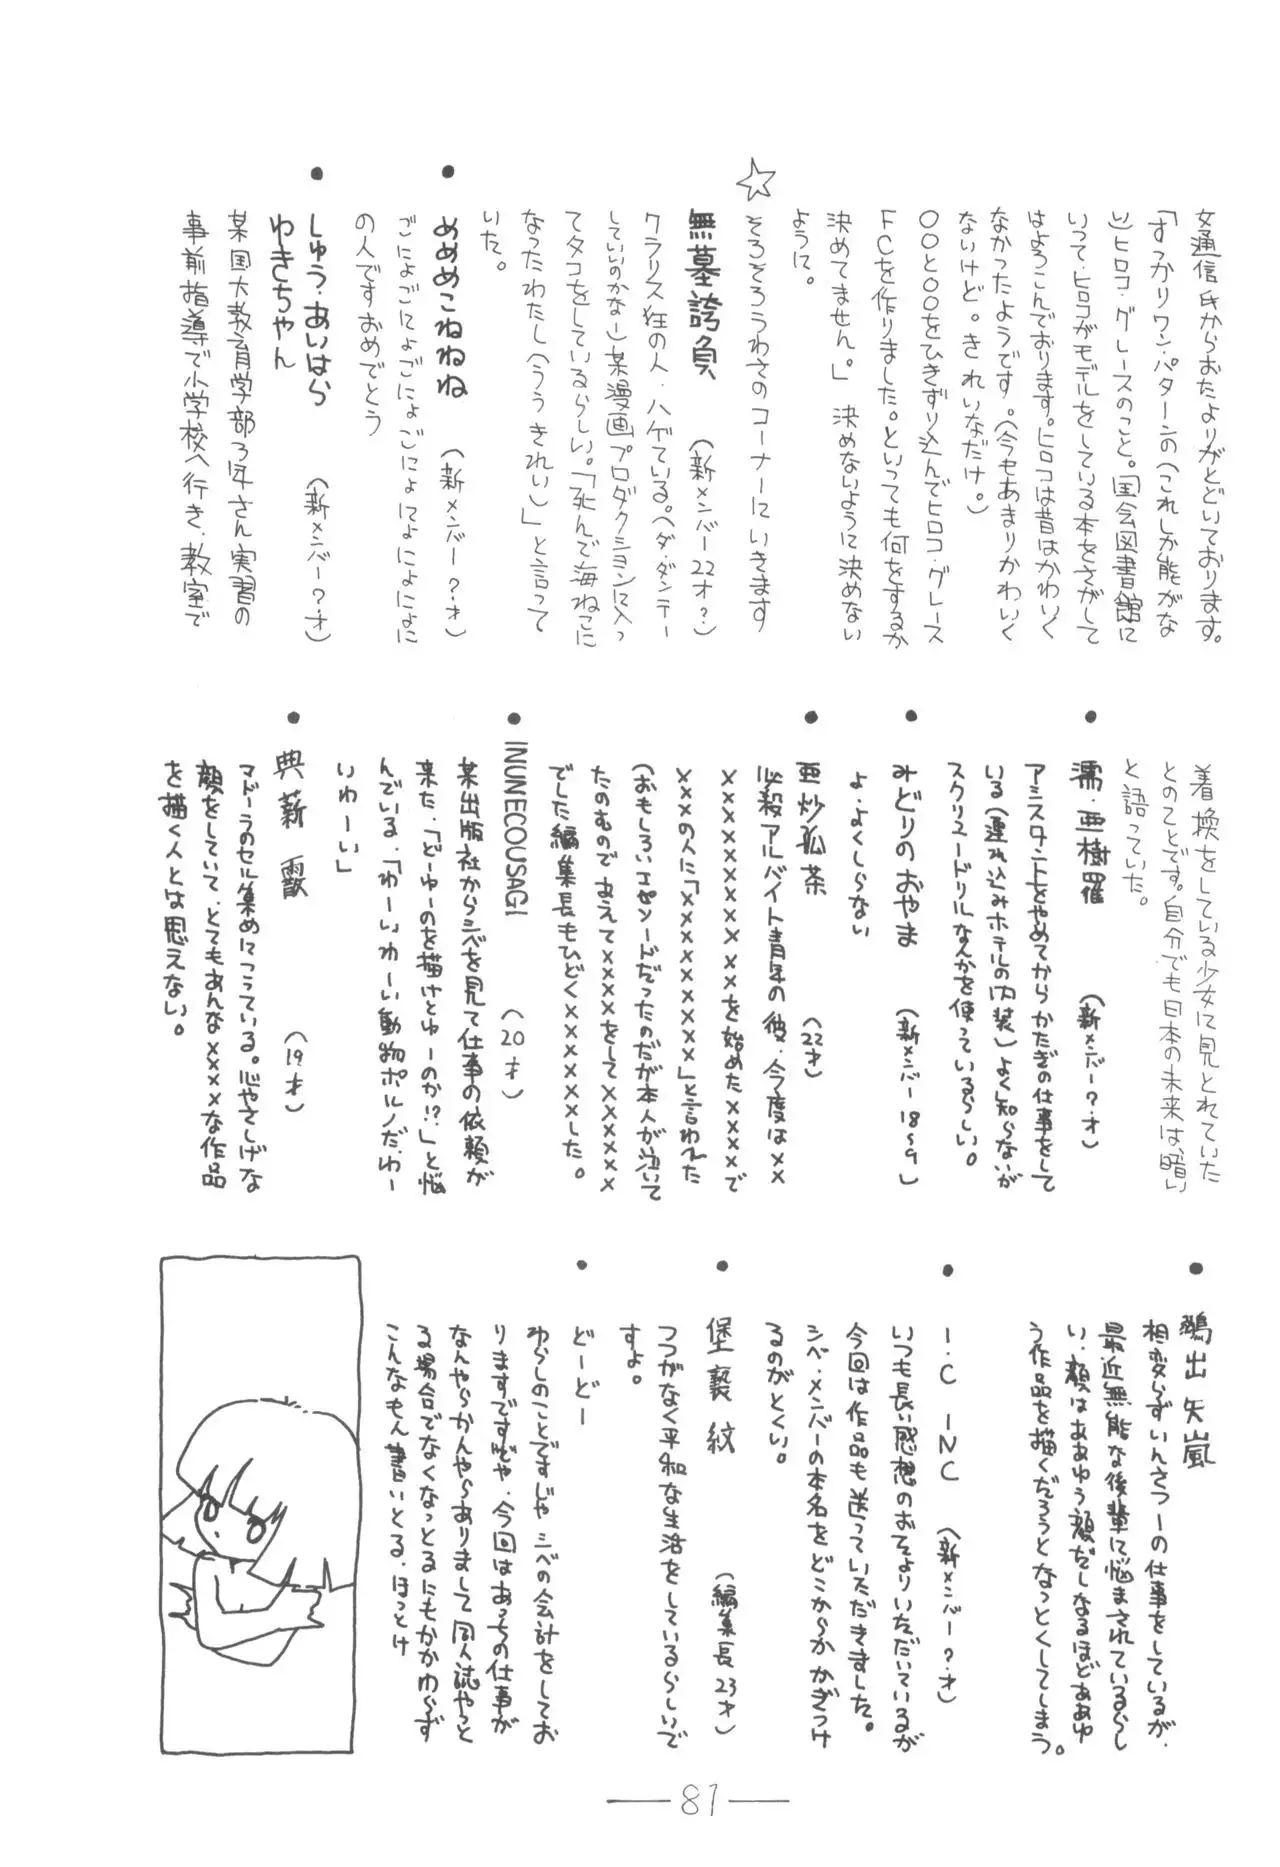 女通信氏からおたよりがとどいております。
「すっかりワンパターンの(これしか能がな
い)ヒロコ・グレースのこと。国会図書館に
いって・ヒロコがモデルをしている本をさがして
はよろこんでおります。ヒロコは昔はかわいく
なかったようです。(今もあまりかわいく
ないけど。きれいなだけ。)
○○と○○をひきずり込んでヒロコ・グレース
FCを作りました。といっても何をするか
決めてません。」決めないように決めない
ように。
☆ そろそろうわさのコーナーにいきます
無墓誇負 (新メンバー22才?)
クラリス狂の人・ハゲている。(ダ・ダンテー
していいのかな―)某漫画プロダクションに入っ
てタコをしているらしい。「死んで海ねこに
なったわたし(ううきれい)」と言って
いた。
● めめめこねねね (新メンバー?・才)
ごにょごにょごにょごにょにょにょにょに
の人ですおめでとう
● しゅう・あいはら
わきちゃん (新メンバー?・才)
某国大教育学部3年さん実習の
事前指導で小学校へ行き、教室で
着換をしている少女に見とれていた
とのことです。自分でも日本の未来は"暗い"
と語っていた。
● 濡・亜樹羅 (新メンバー?・才)
アシスタントをやめてから かたぎの仕事をして
いる(連れ込みホテルの内装)よく知らないが
スクリュードリルなんかを使っているらしい。
● みどりのおやま (新メンバー18~9)
よ・よくしらない
● 亜炒孤茶 (22才)
必殺アルバイト青年の彼・今度は××
××××××××××を始めた××××で
×××の人に「×××××××××」と言われた
(おもしろいエピソードだったのだが本人が泣いて
たのむので あえて××××をして××××××
でした編集長もひどく××××××した。
● INUNECOUSAGI (20才)
某出版社からシベを見て仕事の依頼が
来た・「どーゆーのを描けとゆーのか!?」と悩
んでいる・「わーいわーい動物ポルノだ、わー
いわーい」
● 典薪 (19才)
マドーラのセル集めにこっている。心やさしげな
顔をしていて、とてもあんな××××な作品
を描く人とは思えない。
● 出矢嵐
相変らずいんさつーの仕事をしているが、
最近無能な後輩に悩まされているらし
い・顔はああゆう顔だしなるほどああゆ
う作品を描くだろうとなっとくしてしまう。
● I.C INC (新メンバー?・才)
いつも長い感想のおてよりいただいているが
今回は作品も送っていただきました。
シベ・メンバーの本名をどこからか かぎつけ
るのがとくい。
● 堡褻紋 (編集長23才)
つつがなく平和な生活をしているらしいで
すよ。
● どーどー
わらしのことですじゃ シベの会計をしてお
りますですじゃ・今回はあっちの仕事が
なんやらかんやらありまして同人誌やっと
る場合でなくなっとるにもかかわらず
こんなもん書いとる・ほっとけ
81